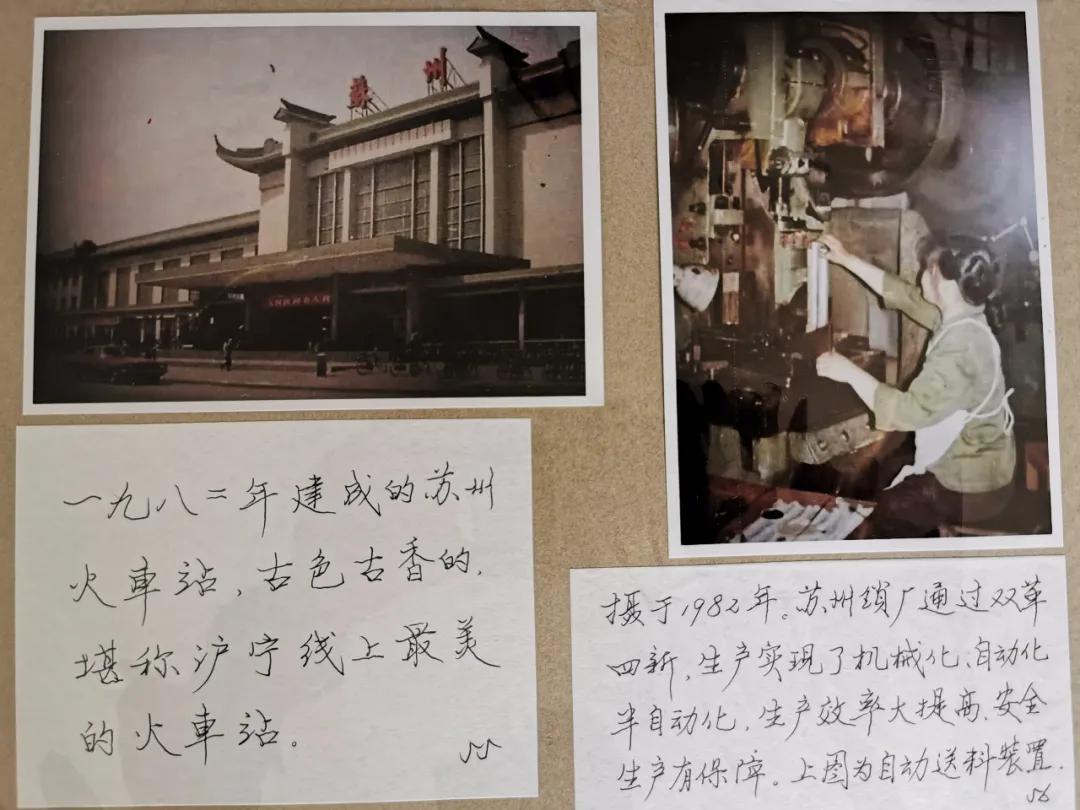 蘇州
一九八二年建成的苏州
火車站,古色古香的,
堪称沪宁线上最美
的火車站。
摄于1982年。苏州锁厂通过双革
四新,生产实现了机械化、自动化
半自动化,生产效率大提高、安全
生产有保障。上图为自动送料裝置.
56